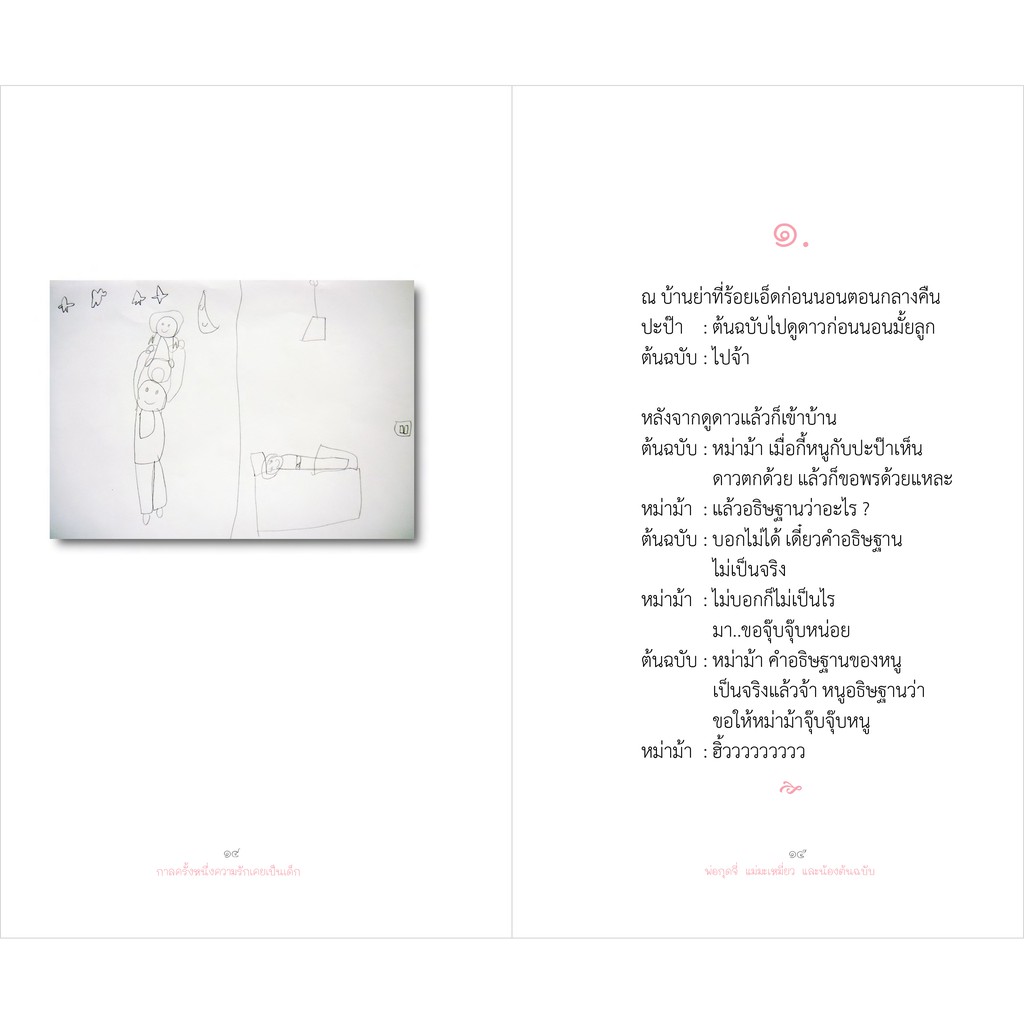 ๑.
ณ บ้านย่าที่ร้อยเอ็ดก่อนนอนตอนกลางคืน
ปะป๊า : ต้นฉบับไปดูดาวก่อนนอนมั้ยลูก
ต้นฉบับ : ไปจ้า
หลังจากดูดาวแล้วก็เข้าบ้าน
ต้นฉบับ : หม่าม้า เมื่อกี้หนูกับปะป๊าเห็น
ดาวตกด้วย แล้วก็ขอพรด้วยแหละ
หม่าม้า : แล้วอธิษฐานว่าอะไร ?
ต้นฉบับ : บอกไม่ได้ เดี๋ยวคำอธิษฐาน
ไม่เป็นจริง
หม่าม้า : ไม่บอกก็ไม่เป็นไร
มา..ขอจุ๊บจุ๊บหน่อย
ต้นฉบับ : หม่าม้า คำอธิษฐานของหนู
เป็นจริงแล้วจ้า หนูอธิษฐานว่า
ขอให้หม่าม้าจุ๊บจุ๊บหนู
หม่าม้า : ฮิ้ววววววววว
๑๔
กาลครั้งหนึ่งความรักเคยเป็นเด็ก
๑๕
พ่อกุดจี่ แม่มะเหมี่ยว และน้องต้นฉบับ